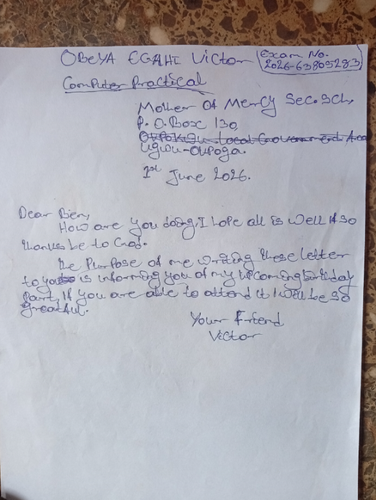 OBEYA EGAHI VICTOR (Exam No. 2026-63805283)
Computer Practical
Mother Of Mercy Sec. Sch,
P. O. Box 130,
Otukpo Local Government Area
Ugwu-Otupoga.
1st June 2026.
Dear Ben,
How are you doing, I hope all is well if so
thanks be to God.
The Purpose of me writing these letter
to you is informing you of my upcoming birthday
Part, If you are able to attend it I will be so
greatful.
Your Friend
Victor